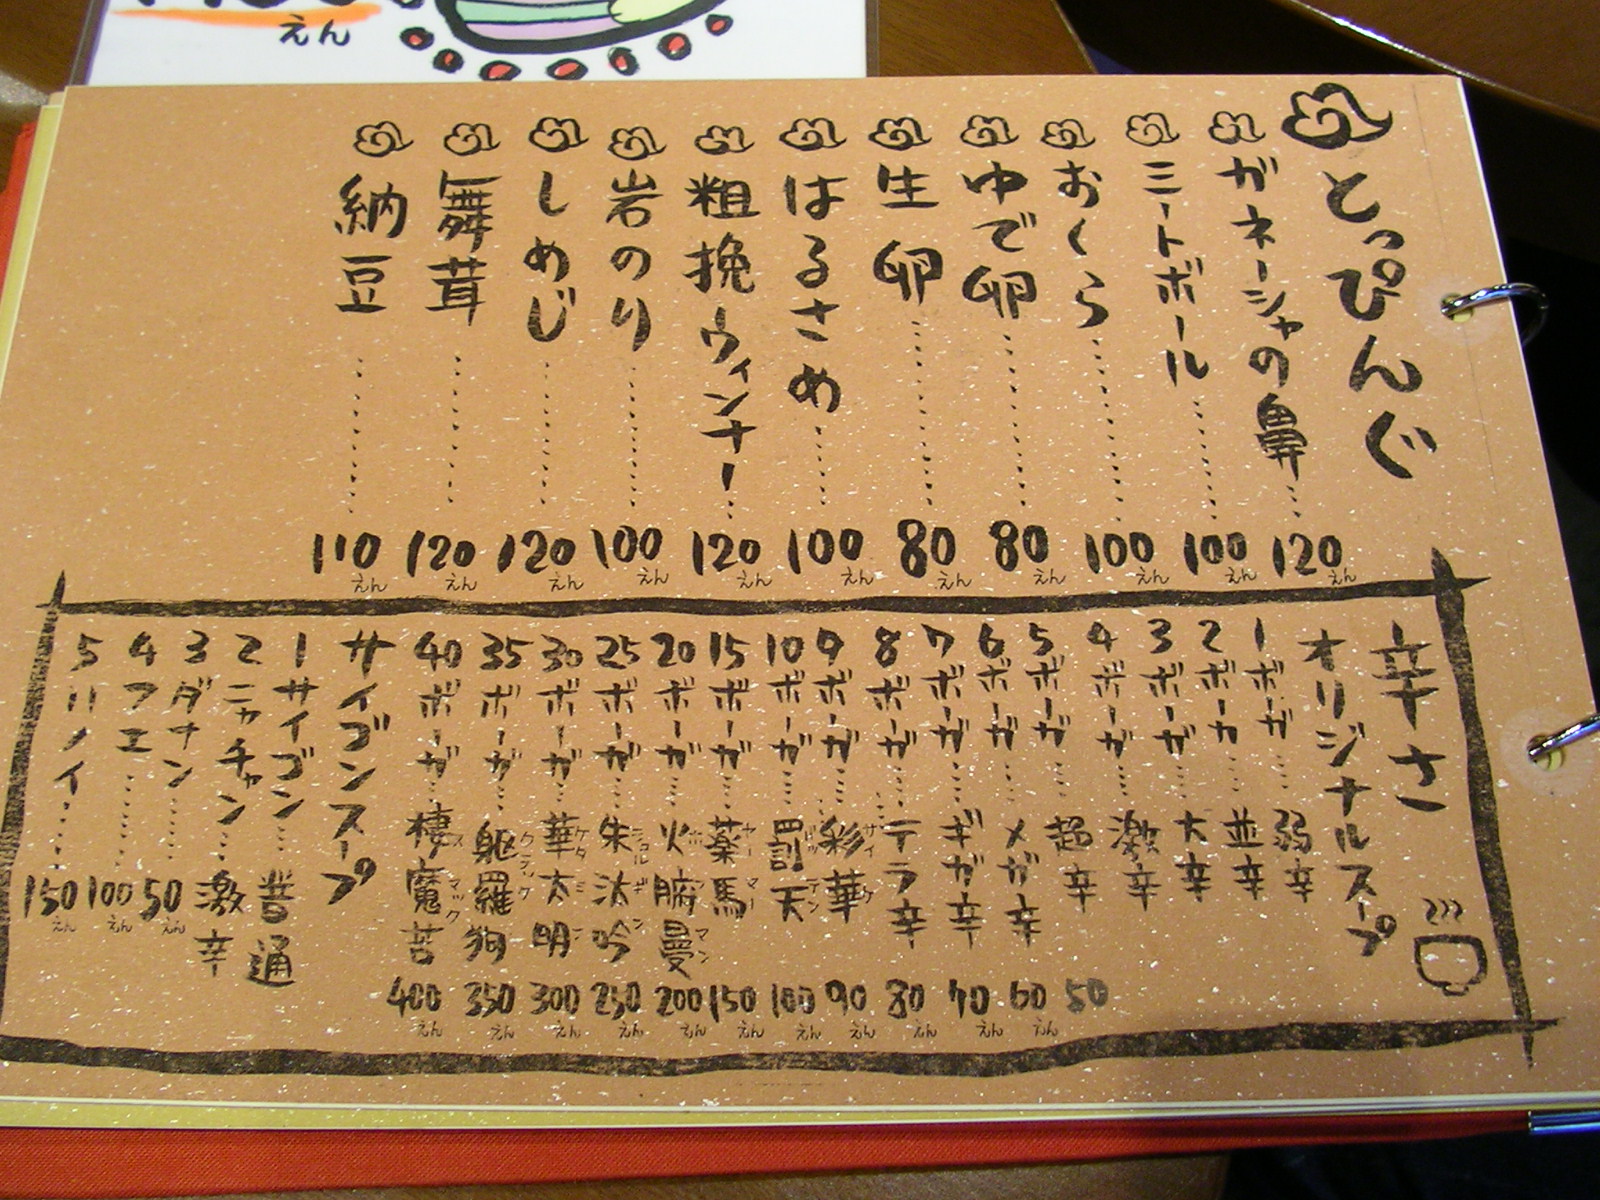 とっぴんぐ
ガネーシャの鼻 120えん
ミートボール 100えん
おくら 100えん
ゆで卵 80えん
生卵 80えん
はるさめ 100えん
粗挽ウィンナー 120えん
岩のり 100えん
しめじ 120えん
舞茸 120えん
納豆 110えん
辛さ
オリジナルスープ
1ボーガ 弱辛
2ボーガ 並辛
3ボーガ 大辛
4ボーガ 激辛
5ボーガ 超辛 50
6ボーガ メガ辛 60えん
7ボーガ ギガ辛 70えん
8ボーガ テラ辛 80えん
9ボーガ 彩華 サイケ 90えん
10ボーガ 罰天 バッテン 100えん
15ボーガ 薬馬 ヤーマー 150えん
20ボーガ 火腑曼 200えん
25ボーガ 朱汰吟 250えん
30ボーガ 華太明 ケタミン 300えん
35ボーガ 躯羅狗 クラック 350えん
40ボーガ 棲魔苦 スマック 400えん
サイゴンスープ
1サイゴン 普通
2ニャチャン 激辛
3ダナン 50えん
4フエ 100えん
5ハノイ 150えん
えん